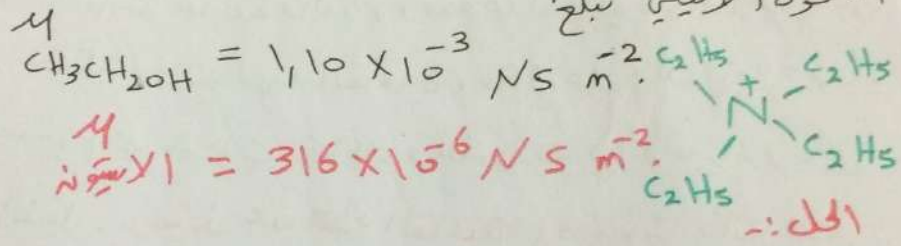 تبلغ
μ CH3CH2OH = 1,10 × 10⁻³ N S m⁻².
μ الاسيتون = 316 × 10⁻⁶ N S m⁻².
C2H5 C2H5
N⁺
C2H5 C2H5
الحل :-